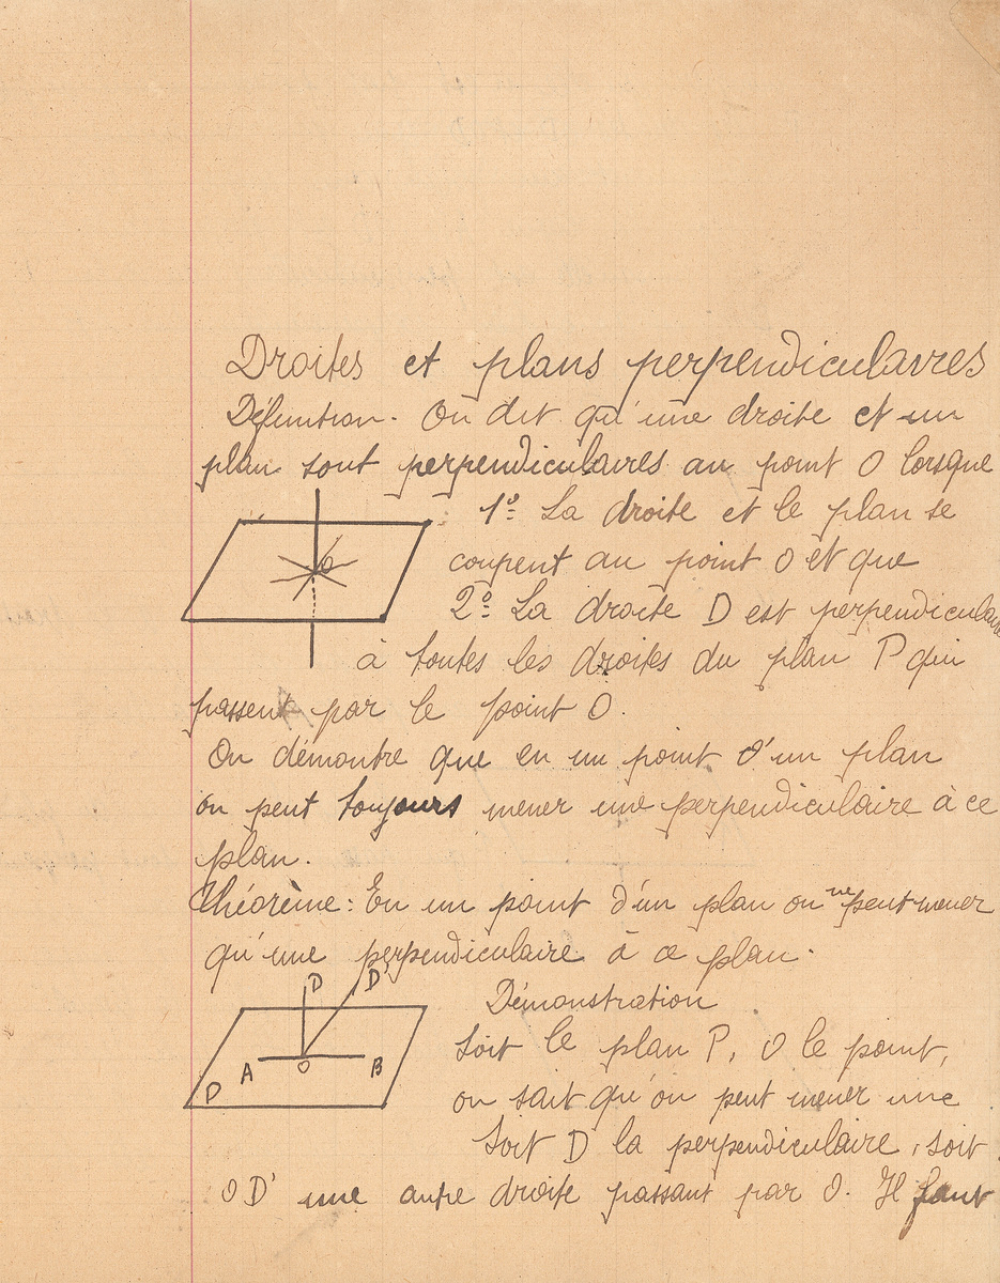 Droites et plans perpendiculaires
Définition. On dit qu'une droite et un
plan sont perpendiculaires au point O lorsque
1º La droite et le plan se
coupent au point O et que
O
2º La droite D est perpendiculaire
à toutes les droites du plan P qui
passent par le point O.
On démontre que en un point d'un plan
on peut toujours mener une perpendiculaire à ce
plan.
Théorème: En un point d'un plan on ne peut mener
qu'une perpendiculaire à ce plan.
D D'
Démonstration
Soit le plan P, O le point,
A O B
P
on sait qu'on peut mener une
Soit D la perpendiculaire, soit
OD' une autre droite passant par O. Il faut